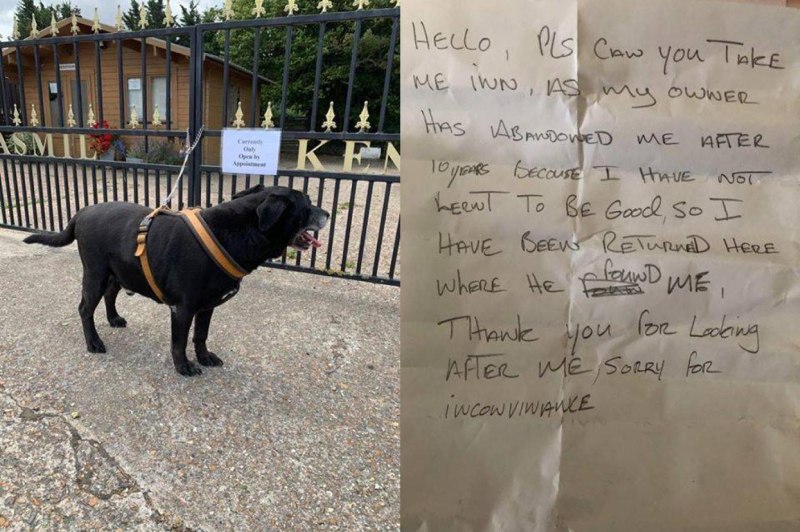 ASMI
KEN
Currently
Only
Open by
Appointment
HELLO, PLS CAN YOU TAKE
ME INN, AS MY OWNER
HAS ABANDONED ME AFTER
10 YEARS BECOUSE I HAVE NOT
LERNT TO BE GOOD, SO I
HAVE BEEN RETURNED HERE
WHERE HE FOUND ME,
THANK YOU FOR LOOKING
AFTER ME, SORRY FOR
INCONVINANCE